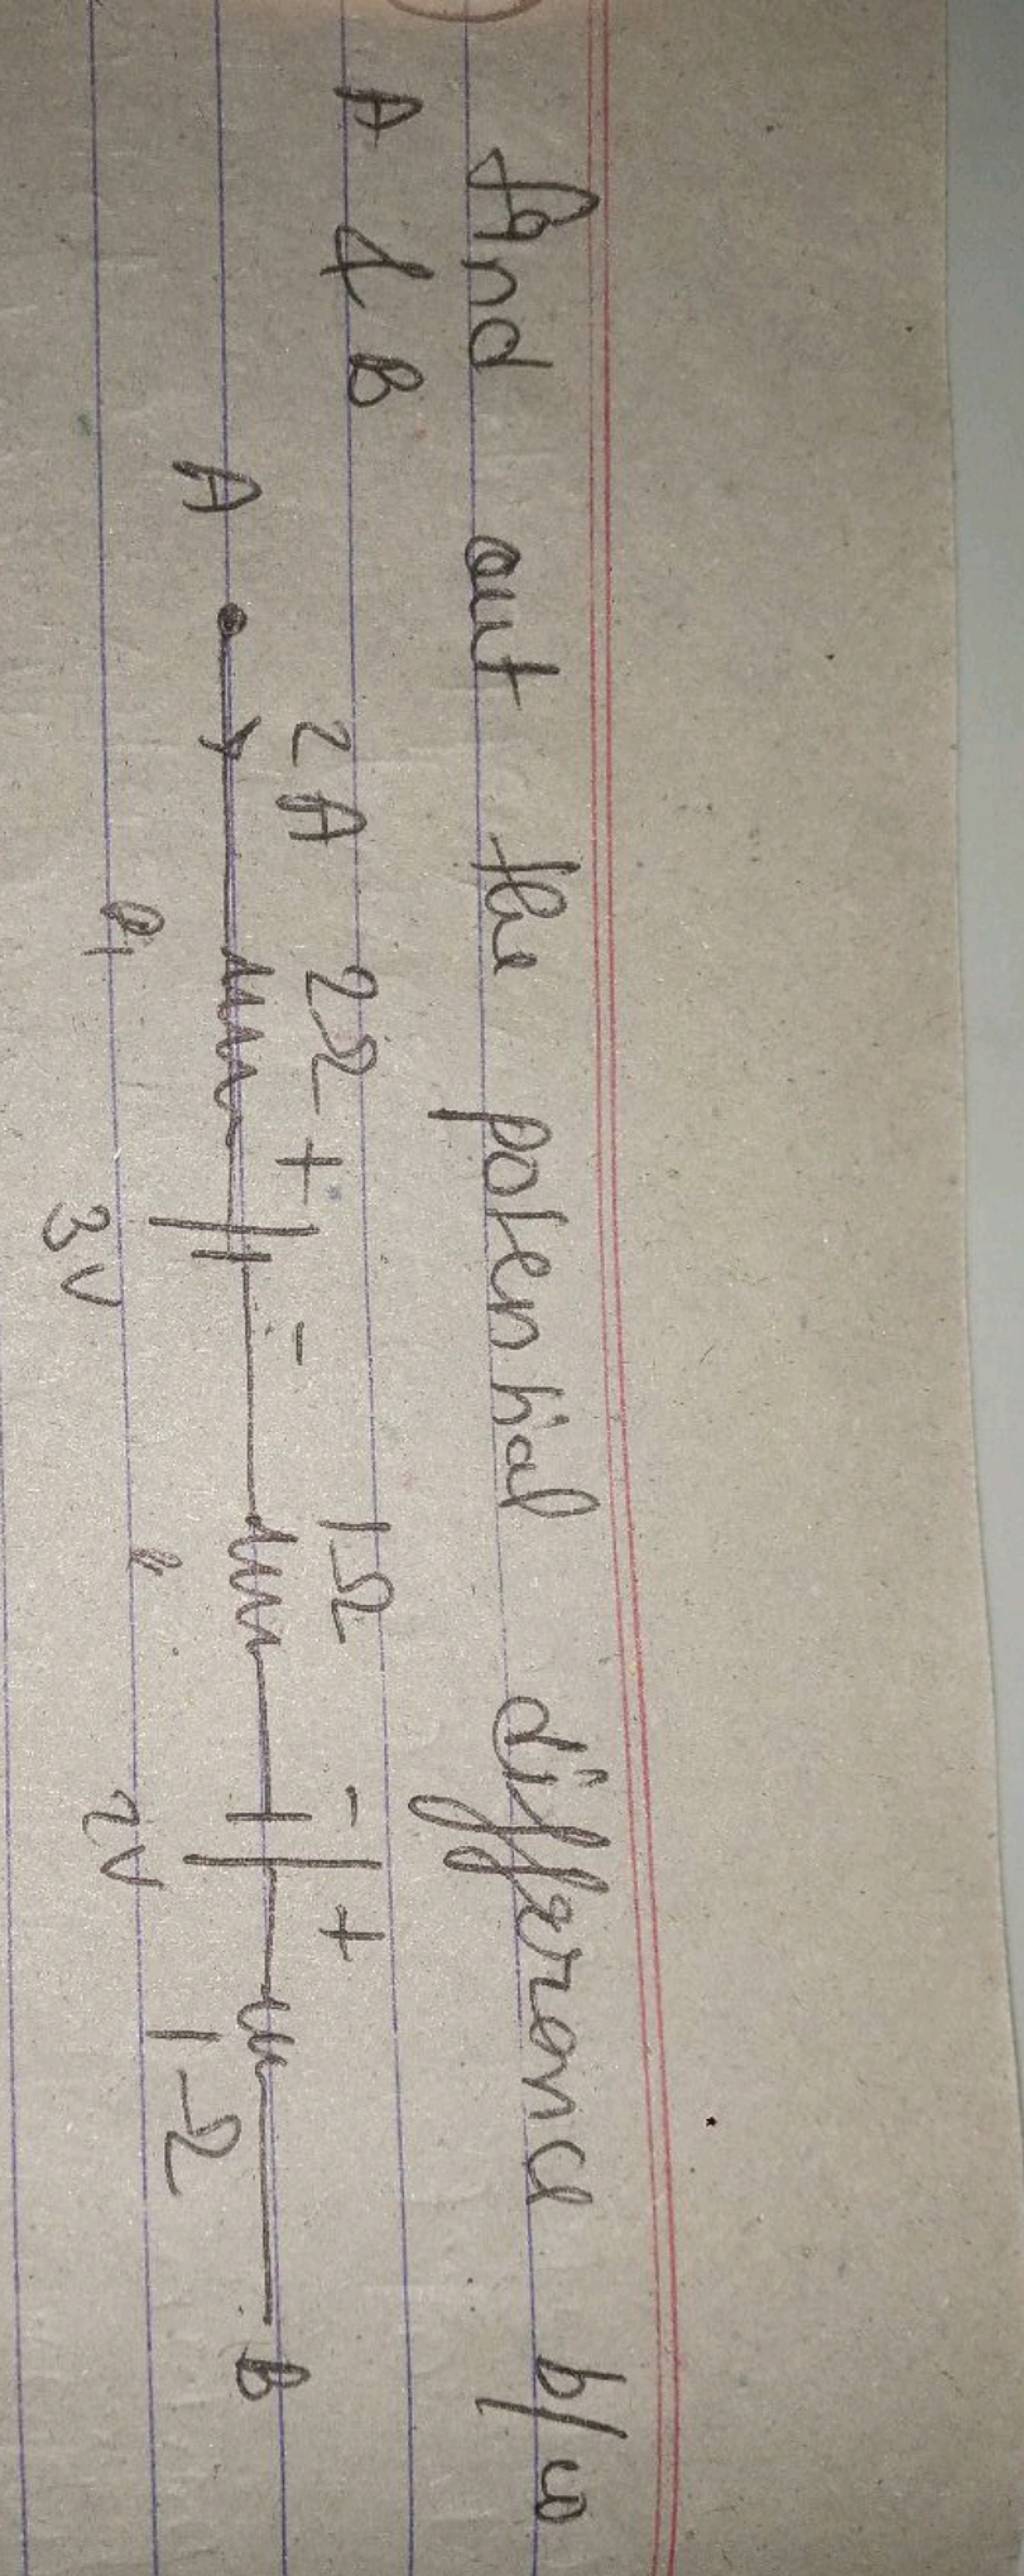 find out the potential diffrence b/w
A & B
2A 2Ω + - 1Ω - +
A B
3V 2V 1Ω